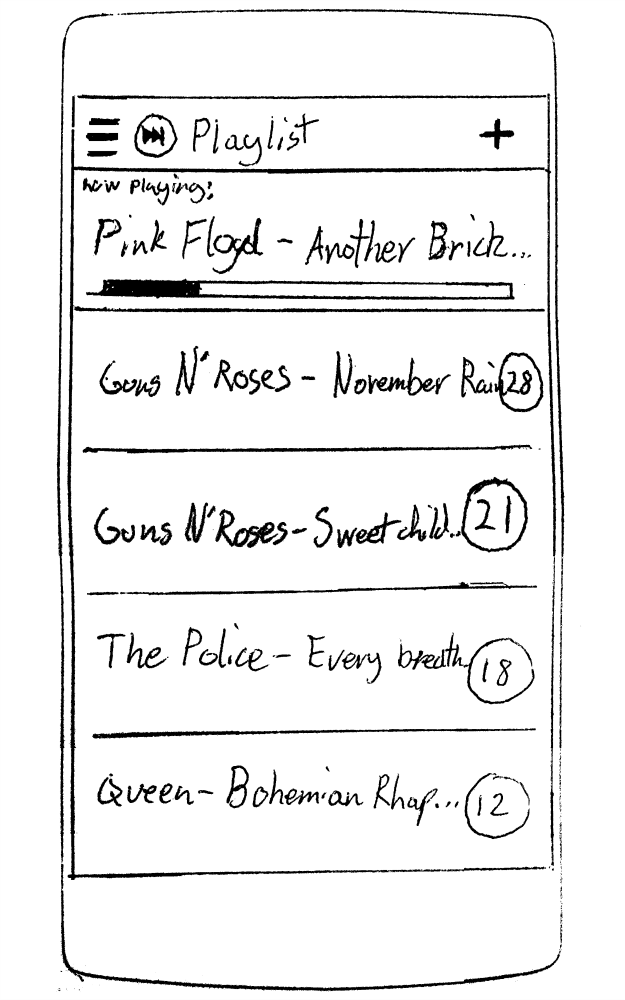 Playlist
now playing:
Pink Floyd - Another Brick...
Guns N' Roses - November Rain 28
Guns N' Roses - Sweet child.. 21
The Police - Every breath 18
Queen - Bohemian Rhap... 12